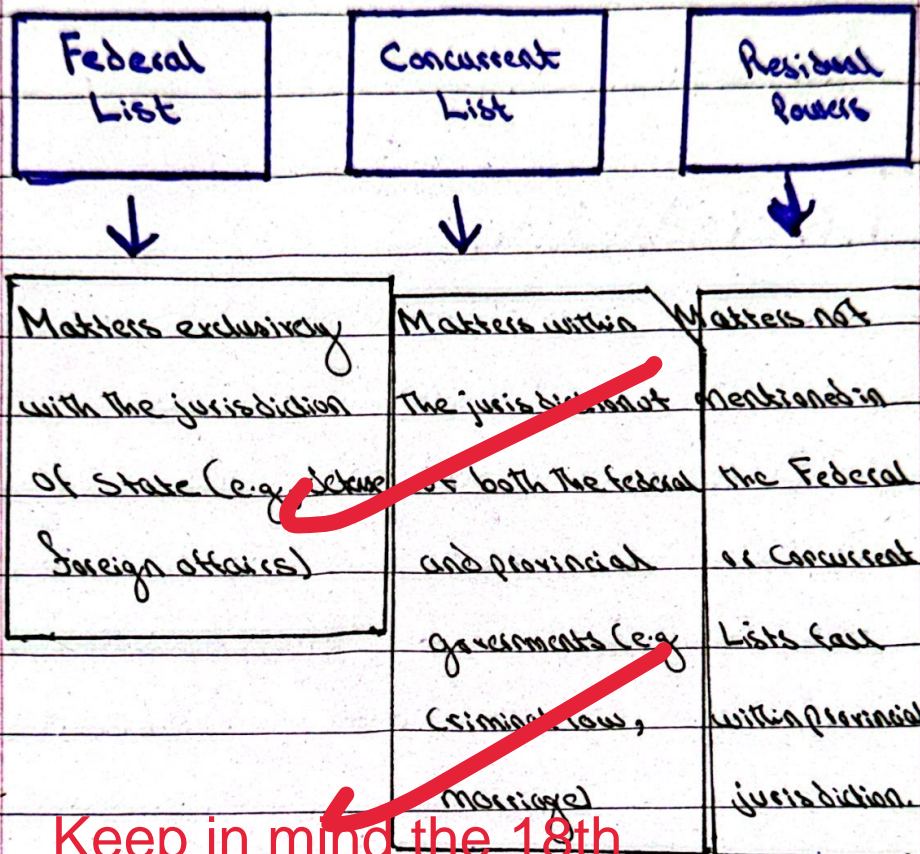 Federal
List
Concurrent
List
Residual
Powers
Matters exclusively
with the jurisdiction
of State (e.g. defense
foreign affairs)
Matters within
the jurisdiction of
of both the federal
and provincial
governments (e.g
Criminal law,
marriage)
Matters not
mentioned in
the Federal
or Concurrent
Lists fall
within provincial
jurisdiction.
Keep in mind the 18th